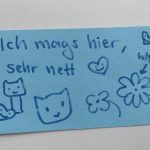 Ich mags hier,
sehr nett